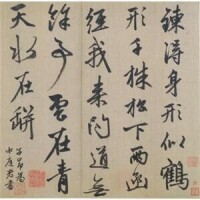 鍊得身形似鶴
形千株松下兩函
經我来問道無
餘事雲在青
天水在缾
子昂為
中庭書